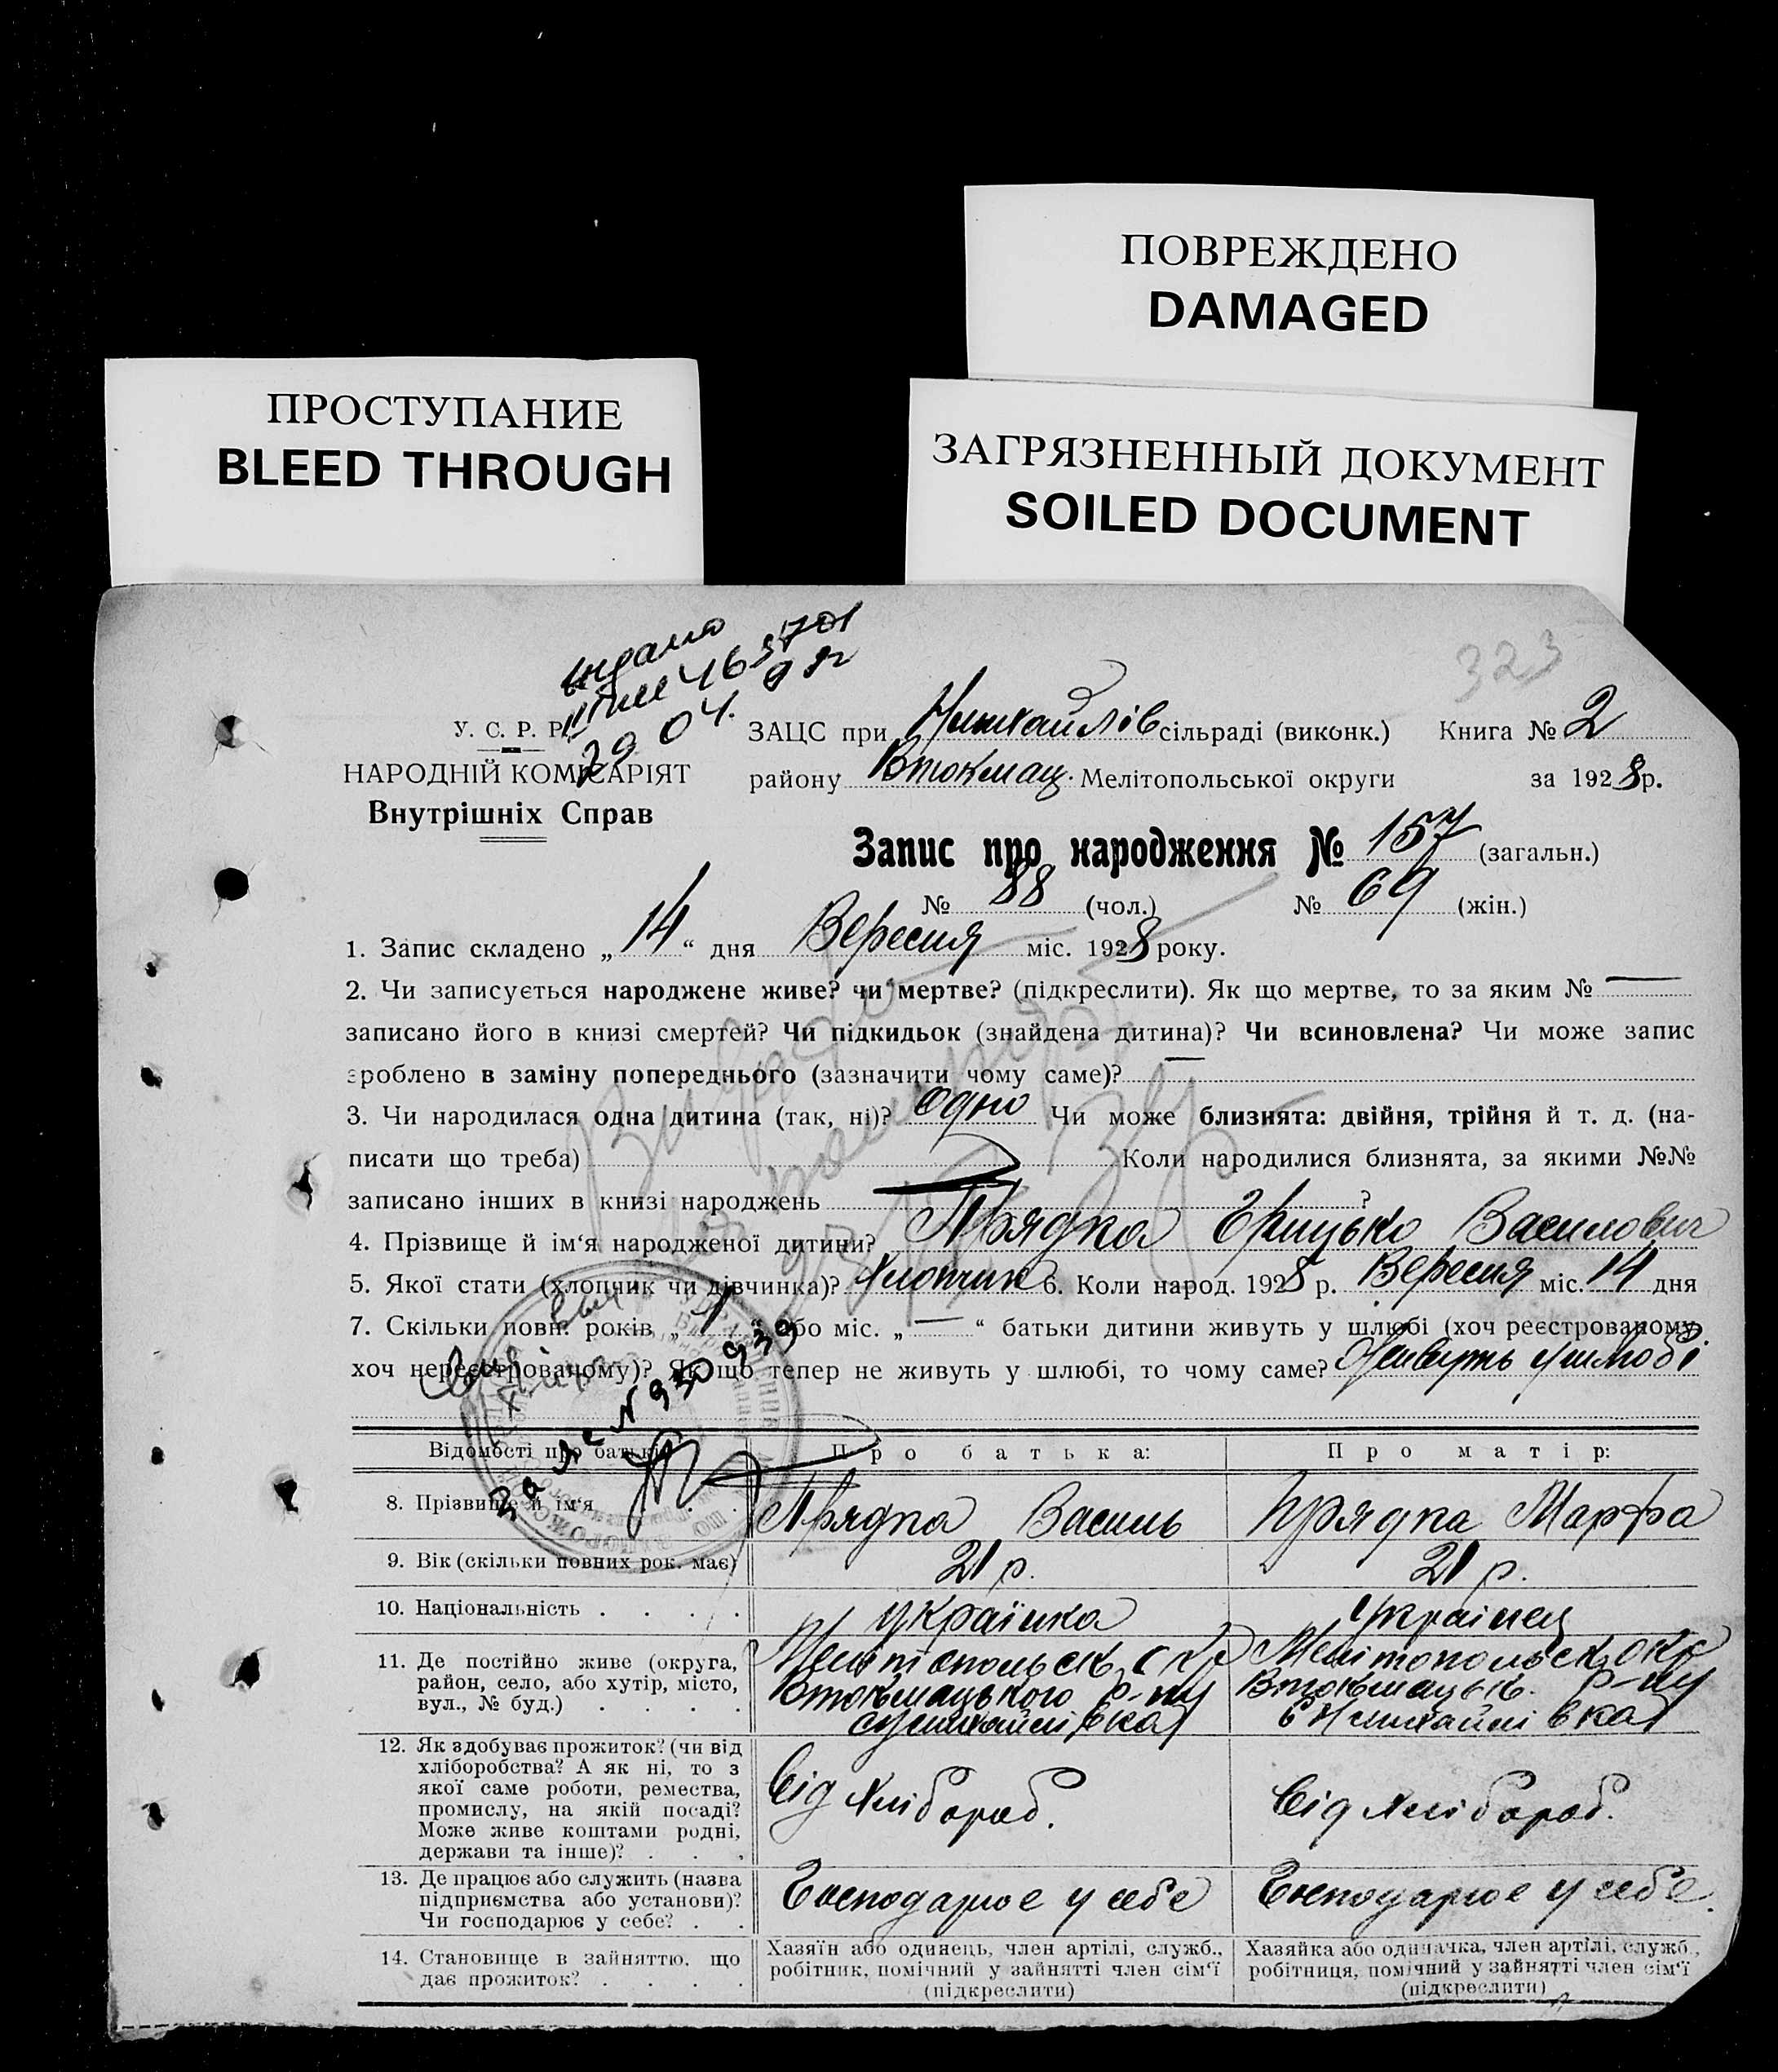 ПОВРЕЖДЕНО
DAMAGED
ПРОСТУПАНИЕ
BLEED THROUGH
ЗАГРЯЗНЕННЫЙ ДОКУМЕНТ
SOILED DOCUMENT
323
У. С. Р. Р.
НАРОДНІЙ КОМІСАРІЯТ
Внутрішніх Справ
ЗАЦС при сільраді (виконк.) Книга № 2
району Втокмац. Мелітопольської округи за 1928 р.
Запис про народження № 157 (загальн.)
№ 88 (чол.) № 69 (жін.)
1. Запис складено „14“ дня Вересня міс. 1928 року.
2. Чи записується народжене живе? чи мертве? (підкреслити). Як що мертве, то за яким № —
записано його в книзі смертей? Чи підкидьок (знайдена дитина)? Чи всиновлена? Чи може запис
зроблено в заміну попереднього (зазначити чому саме)? —
3. Чи народилася одна дитина (так, ні)? Одно Чи може близнята: двійня, трійня й т. д. (на-
писати що треба) Коли народилися близнята, за якими №№
записано інших в книзі народжень ?
4. Прізвище й ім‘я народженої дитини? Прядка Грицько Василович
5. Якої стати (хлопчик чи дівчинка)? Хлопчик 6. Коли народ. 1928 р. Вересня міс. 14 дня
7. Скільки повн. років „1“ або міс. „—“ батьки дитини живуть у шлюбі (хоч реєстрованому,
хоч нереєстрованому)? Як що тепер не живуть у шлюбі, то чому саме? Живуть у шлюбі
Відомості про батьків Про батька: Про матір:
8. Прізвище й ім‘я Прядка Василь Прядка Марфа
9. Вік (скільки повних рок. має) 21 р. 21 р.
10. Національність . . . . українка Українец
11. Де постійно живе (округа, район, село, або хутір, місто, вул., № буд.) . . . .
Мелітопольськ окр Мелітопольськ окр
Втокмацького р-ну Втокмацьк. р-ну
12. Як здобуває прожиток? (чи від
хліборобства? А як ні, то з
якої саме роботи, ремества,
промислу, на якій посаді?
Може живе коштами родні,
держави та інше)? . . .
Від хлібороб. Від хлібороб.
13. Де працює або служить (назва
підприємства або установи)?
Чи господарює у себе? . .
Господарює у себе Господарює у себе.
14. Становище в зайняттю, що
дає прожиток? . . . .
Хазяїн або одинець, член артілі, служб.,
робітник, помічний у зайнятті член сім‘ї
(підкреслити)
Хазяйка або одиначка, член артілі, служб.,
робітниця, помічний у зайнятті член сім‘ї
(підкреслити)